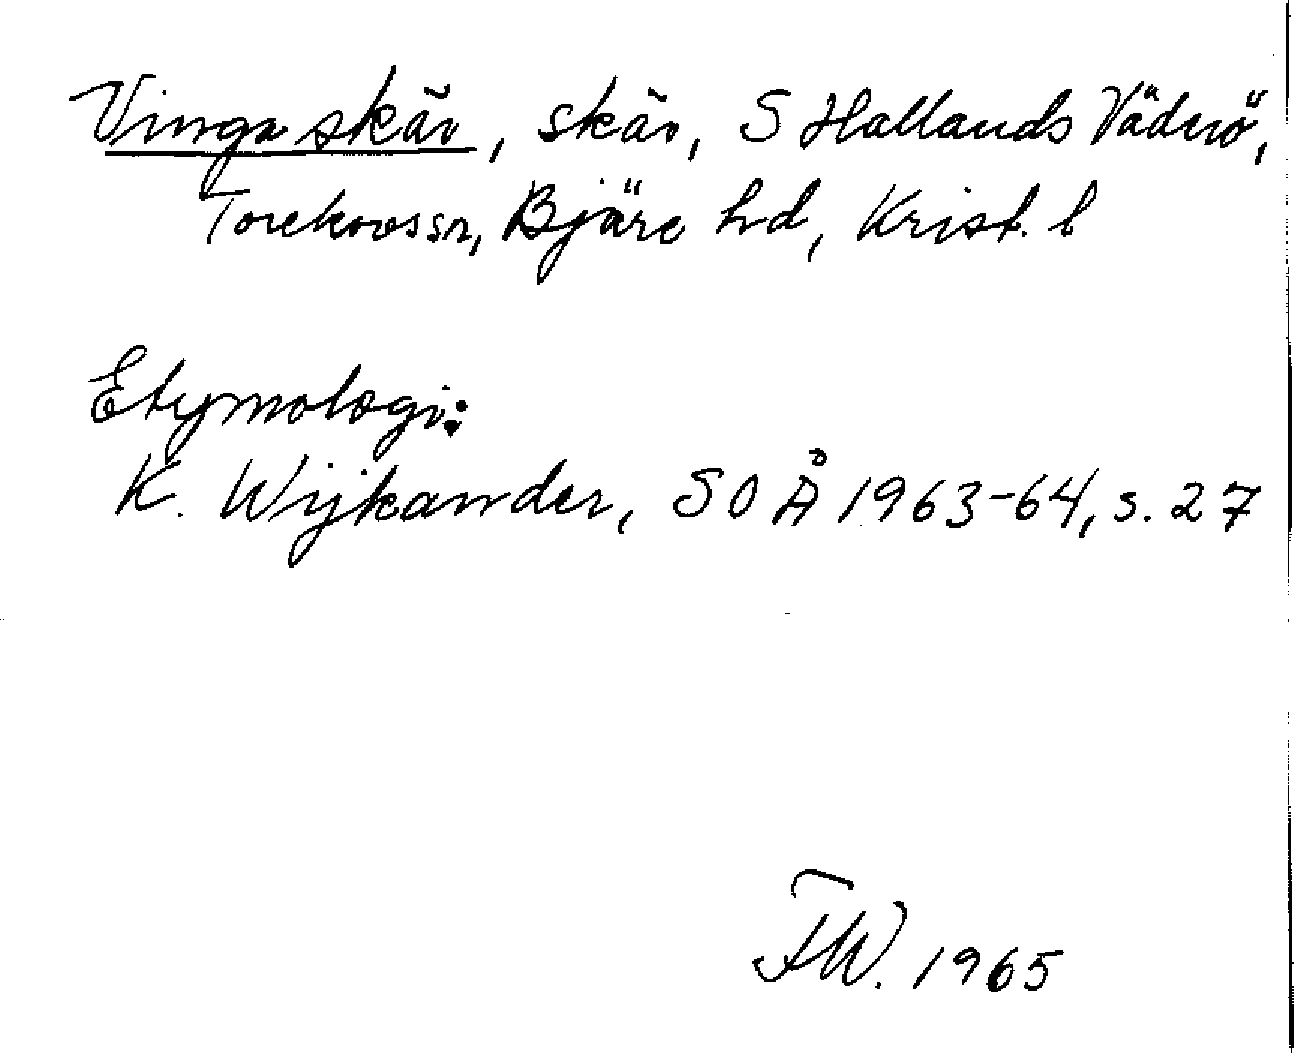 Vinga skär, skär, S Hallands Väderö,
Torekovs sn, Bjäre hd, Krist. l
Etymologi:
K. Wijkander, SOÅ 1963-64, s. 27
F.W. 1965